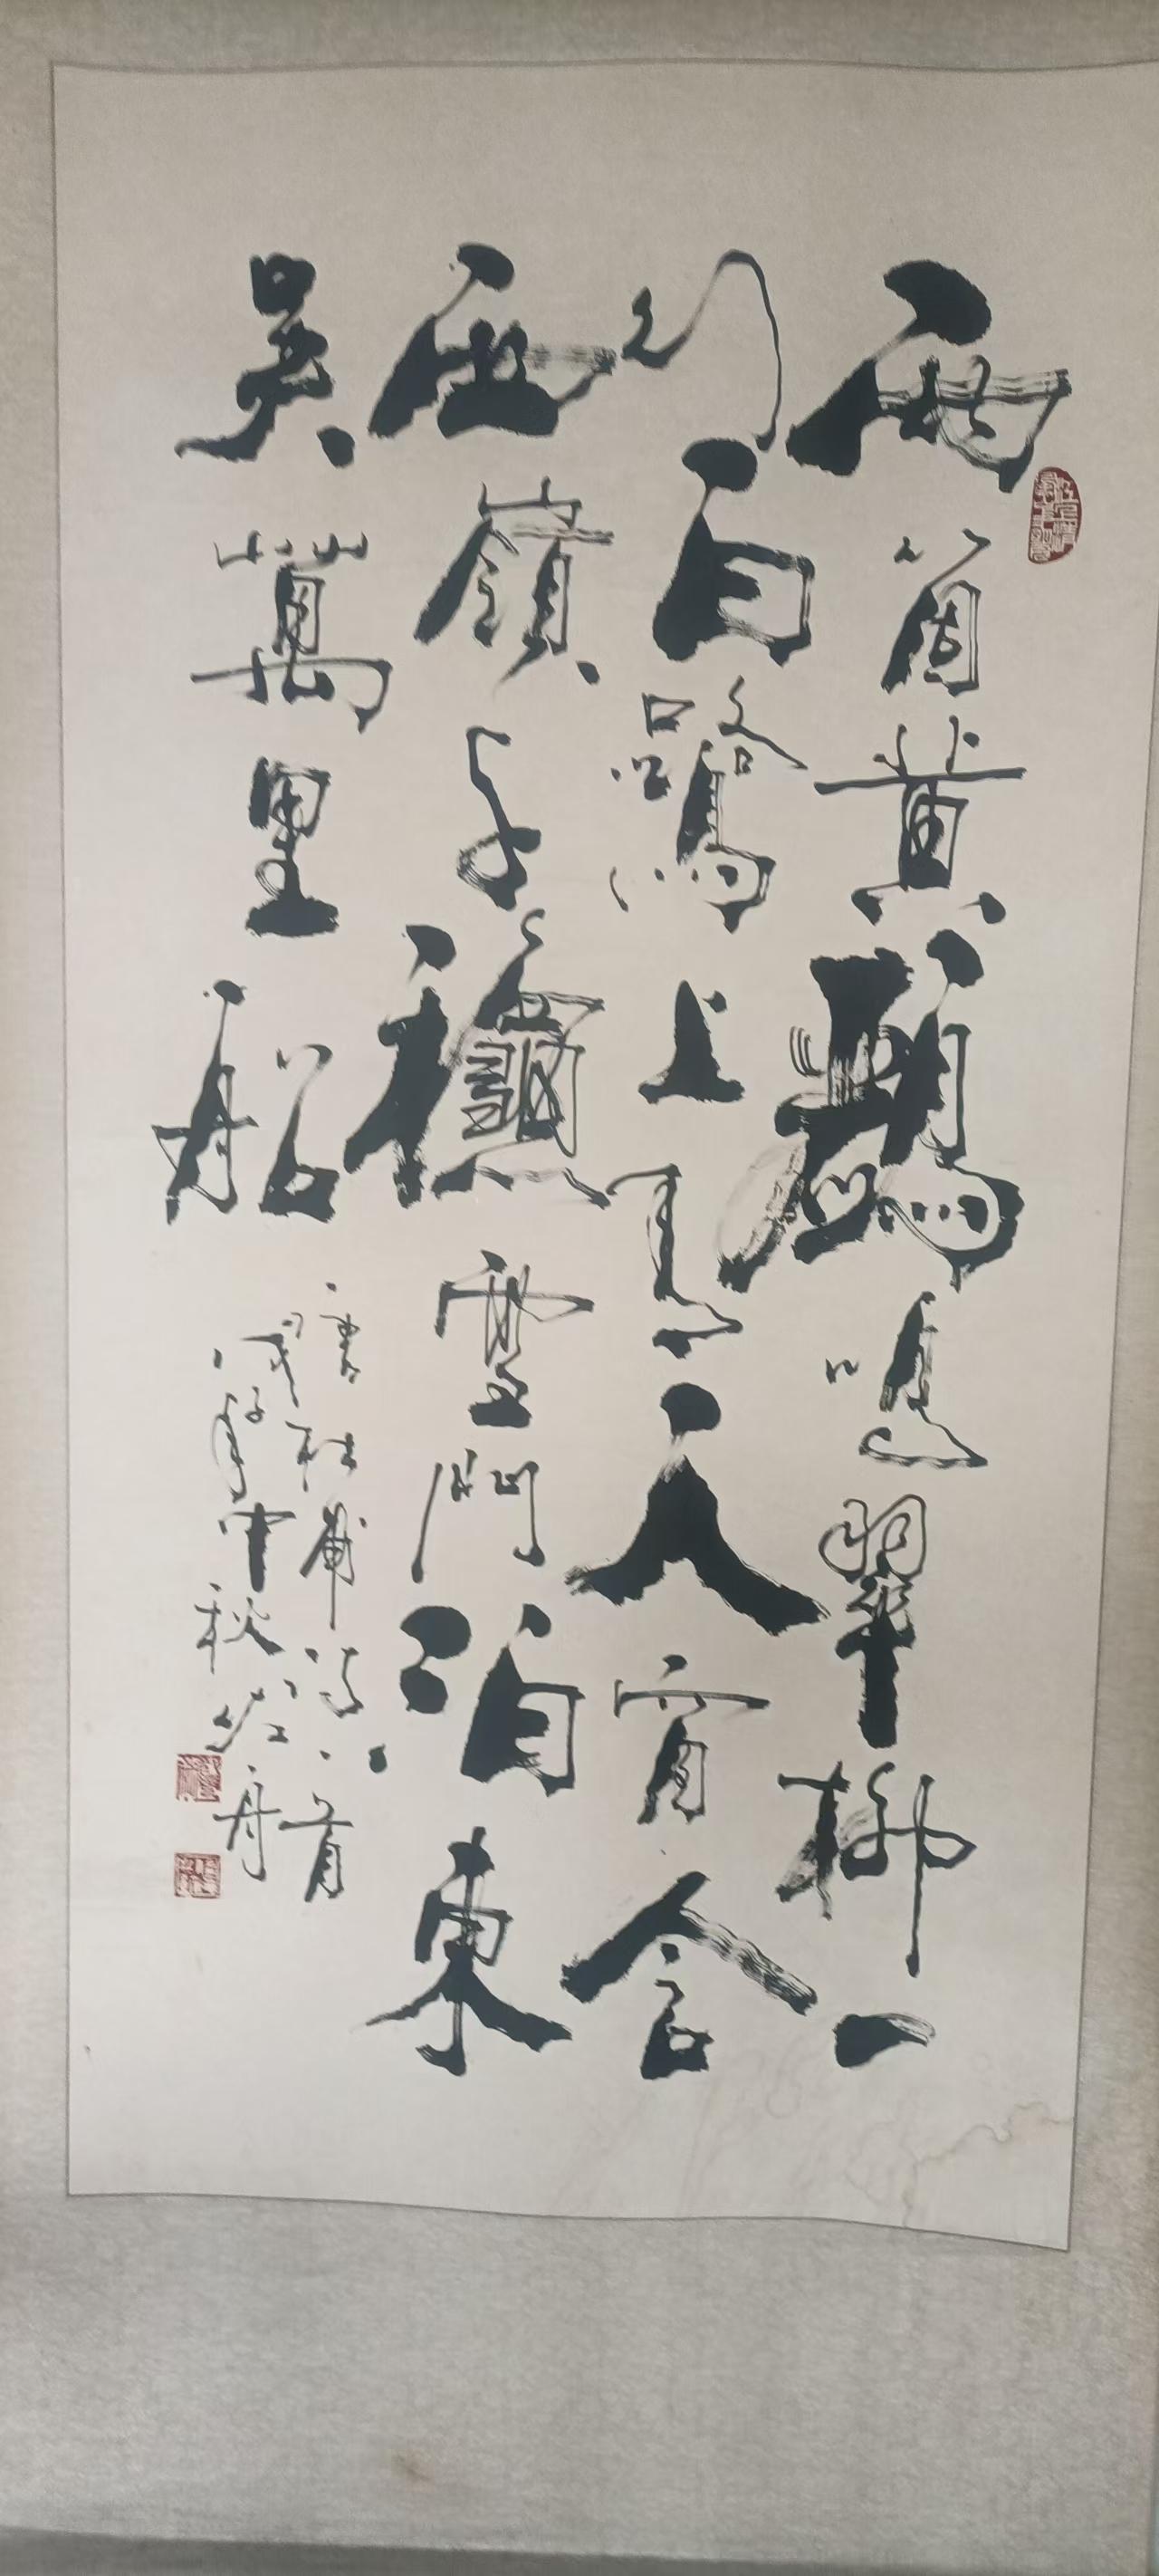 兩箇黃鸝鳴翠柳一
行白鷺上青天窗含
西嶺千龝雪門泊東
吳萬里船
書杜甫詩一首
戊子年中秋 舟